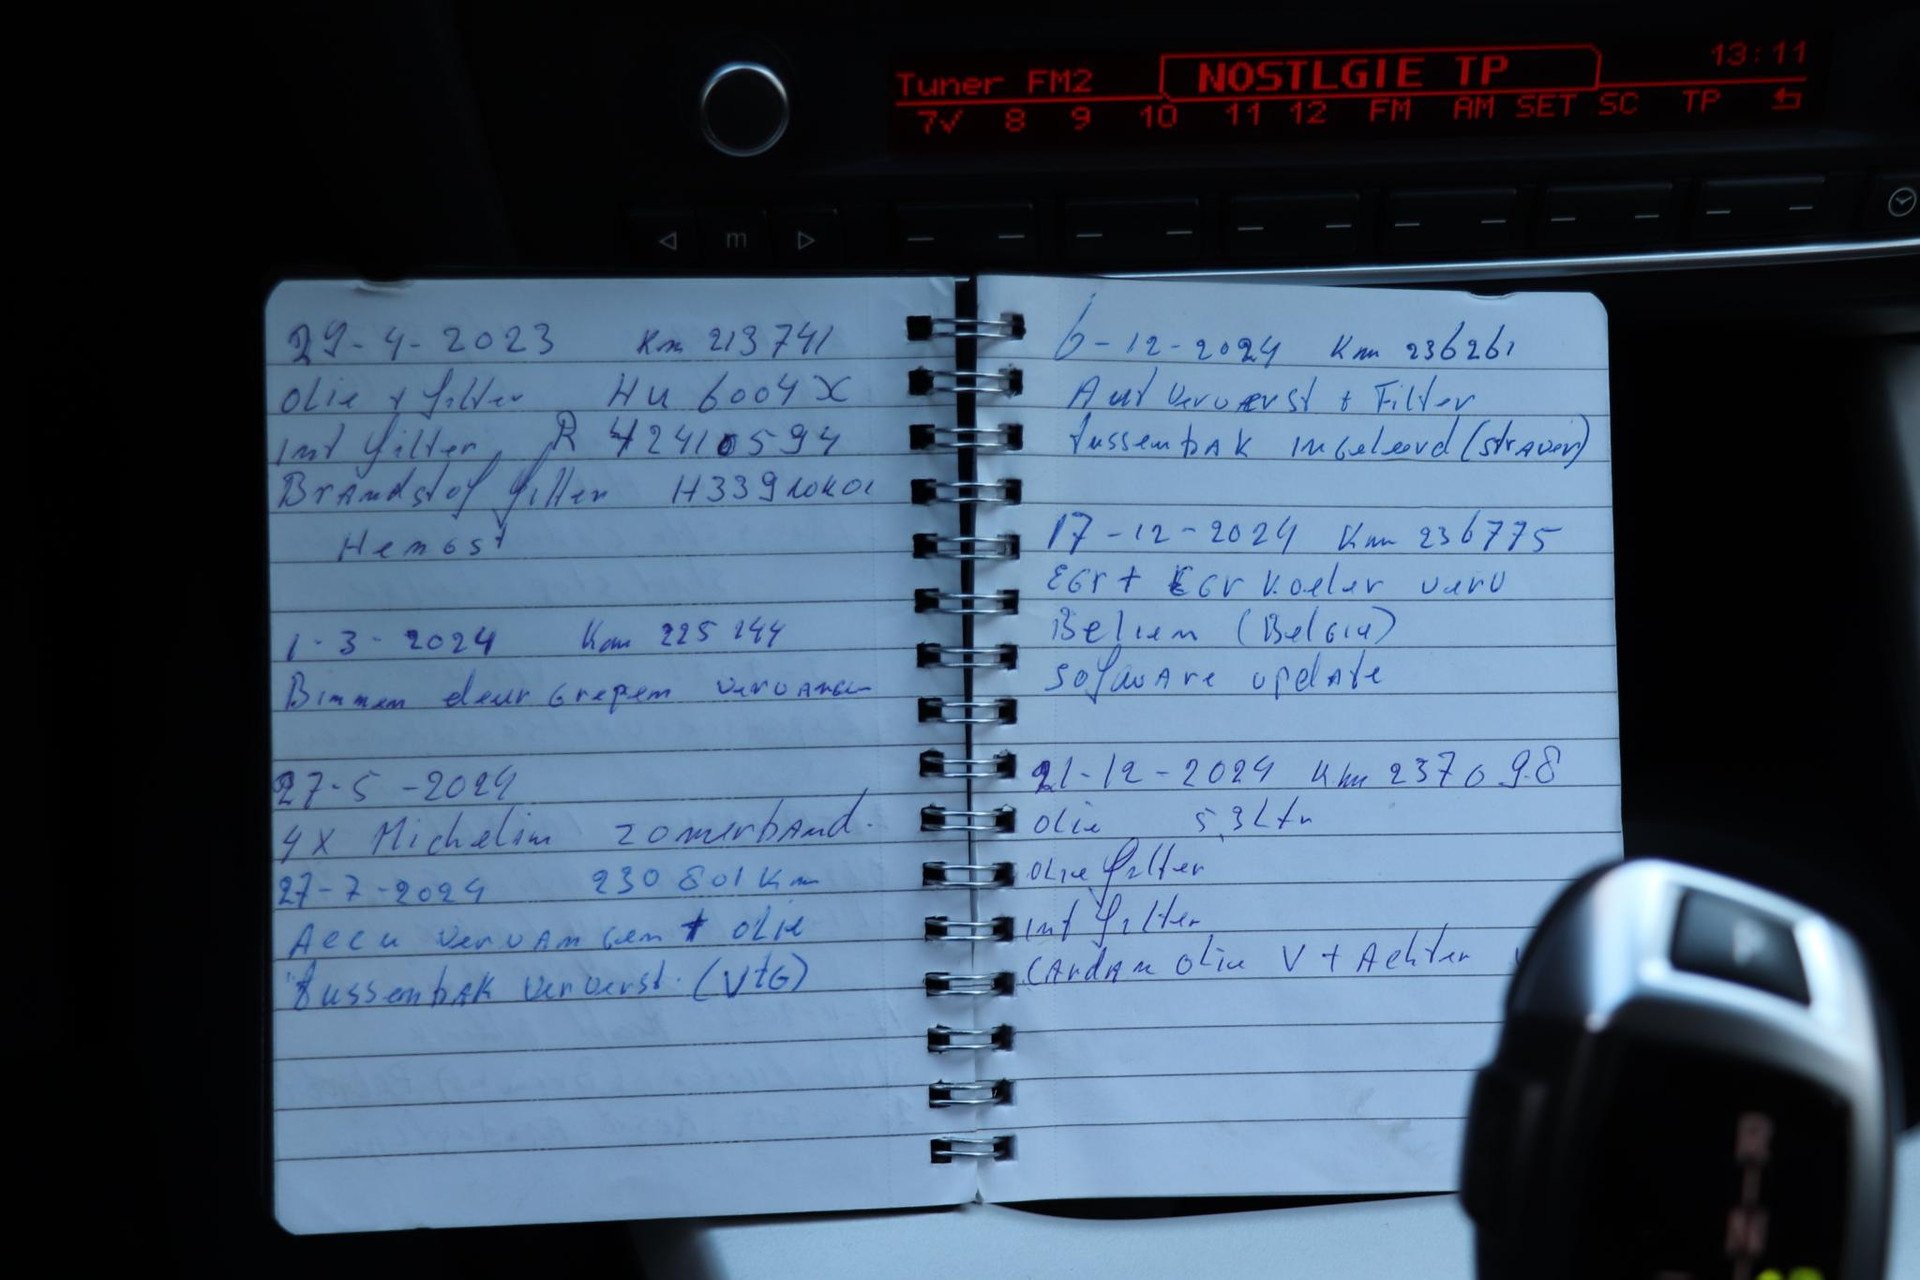 Tuner FM2 NOSTLGIE TP 13:11
7✓ 8 9 10 11 12 FM AM SET SC TP
m
29-4-2023 Km 213741
Olie + filter HU 6004X
int filter R
Brandstof filter
Hengst
1-3-2024 Km 225 244
Binnen deur grepen vervangen
27-5-2024
4x Michelin zomerband.
27-7-2024 230 801 Km
Accu vervangen + olie
Tussenbak ververst. (VTG)
6-12-2024 Km 236261
Aut ververst + Filter
tussenbak ingeleerd (Straver)
17-12-2024 Km 236775
EGR + EGR koeler verv
(Belgie)
sofware update
21-12-2024 Km 237098
Olie 5,3 Ltr
Olie filter
int filter
Cardan olie V + Achter
R
N